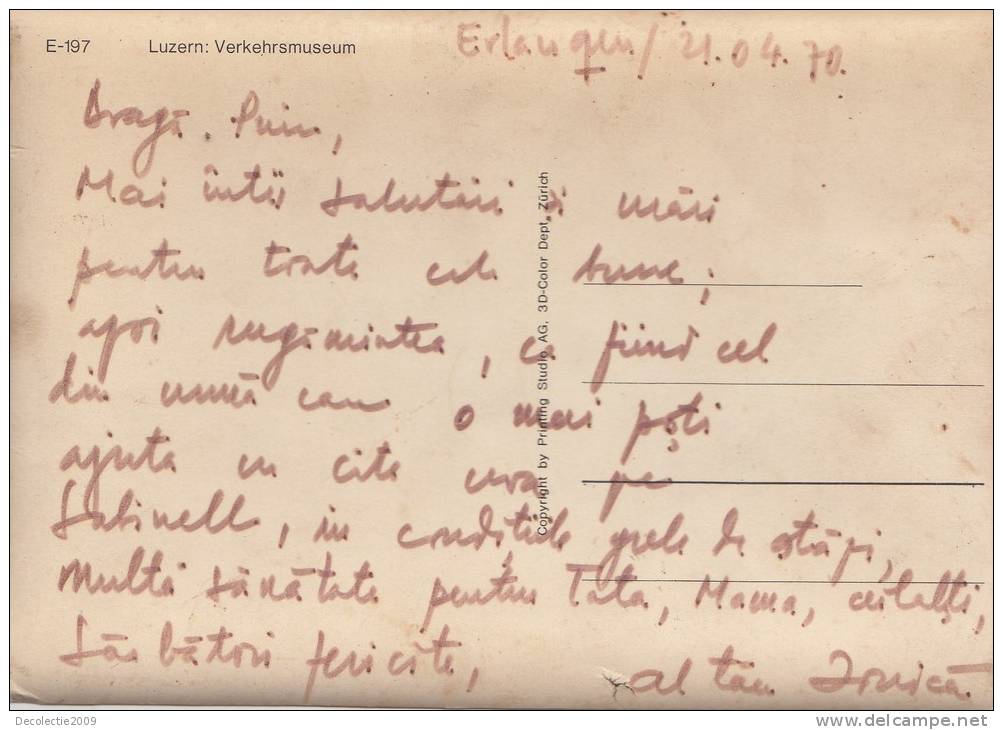 E-197 Luzern: Verkehrsmuseum
Erlangen/ 21.04.70.
Dragă Puiu,
Mai întîi salutări și urări
pentru toate cele bune;
apoi rugămintea, ca fiind cel
din urmă care o mai poți
ajuta cu cîte ceva pe
în condițiile grele de astăzi,
Multă sănătate pentru Tata, Mama, ceilalți,
Sărbători fericite,
al tău Ionică
Copyright by Printing Studio AG, 3D-Color Dept. Zürich
Decolectie2009
delcampe.net